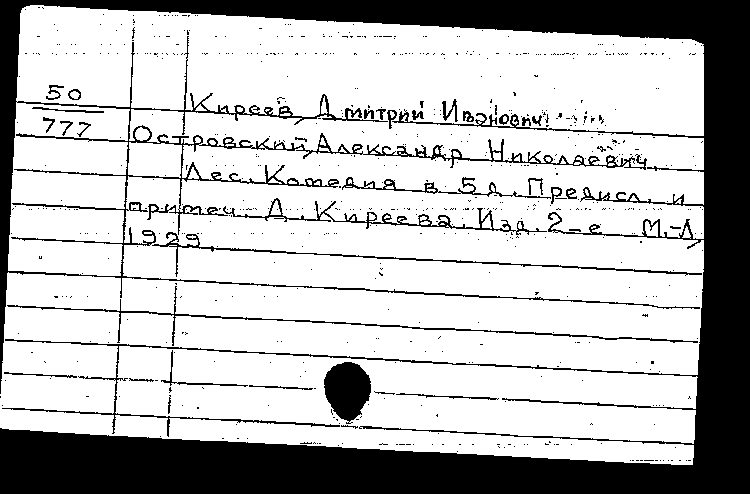 50
777
Киреев, Дмитрий Иванович.
Островский, Александр Николаевич.
Лес. Комедия в 5 д. Предисл. и
примеч. Д. Киреева. Изд. 2-е М.-Л,
1929.